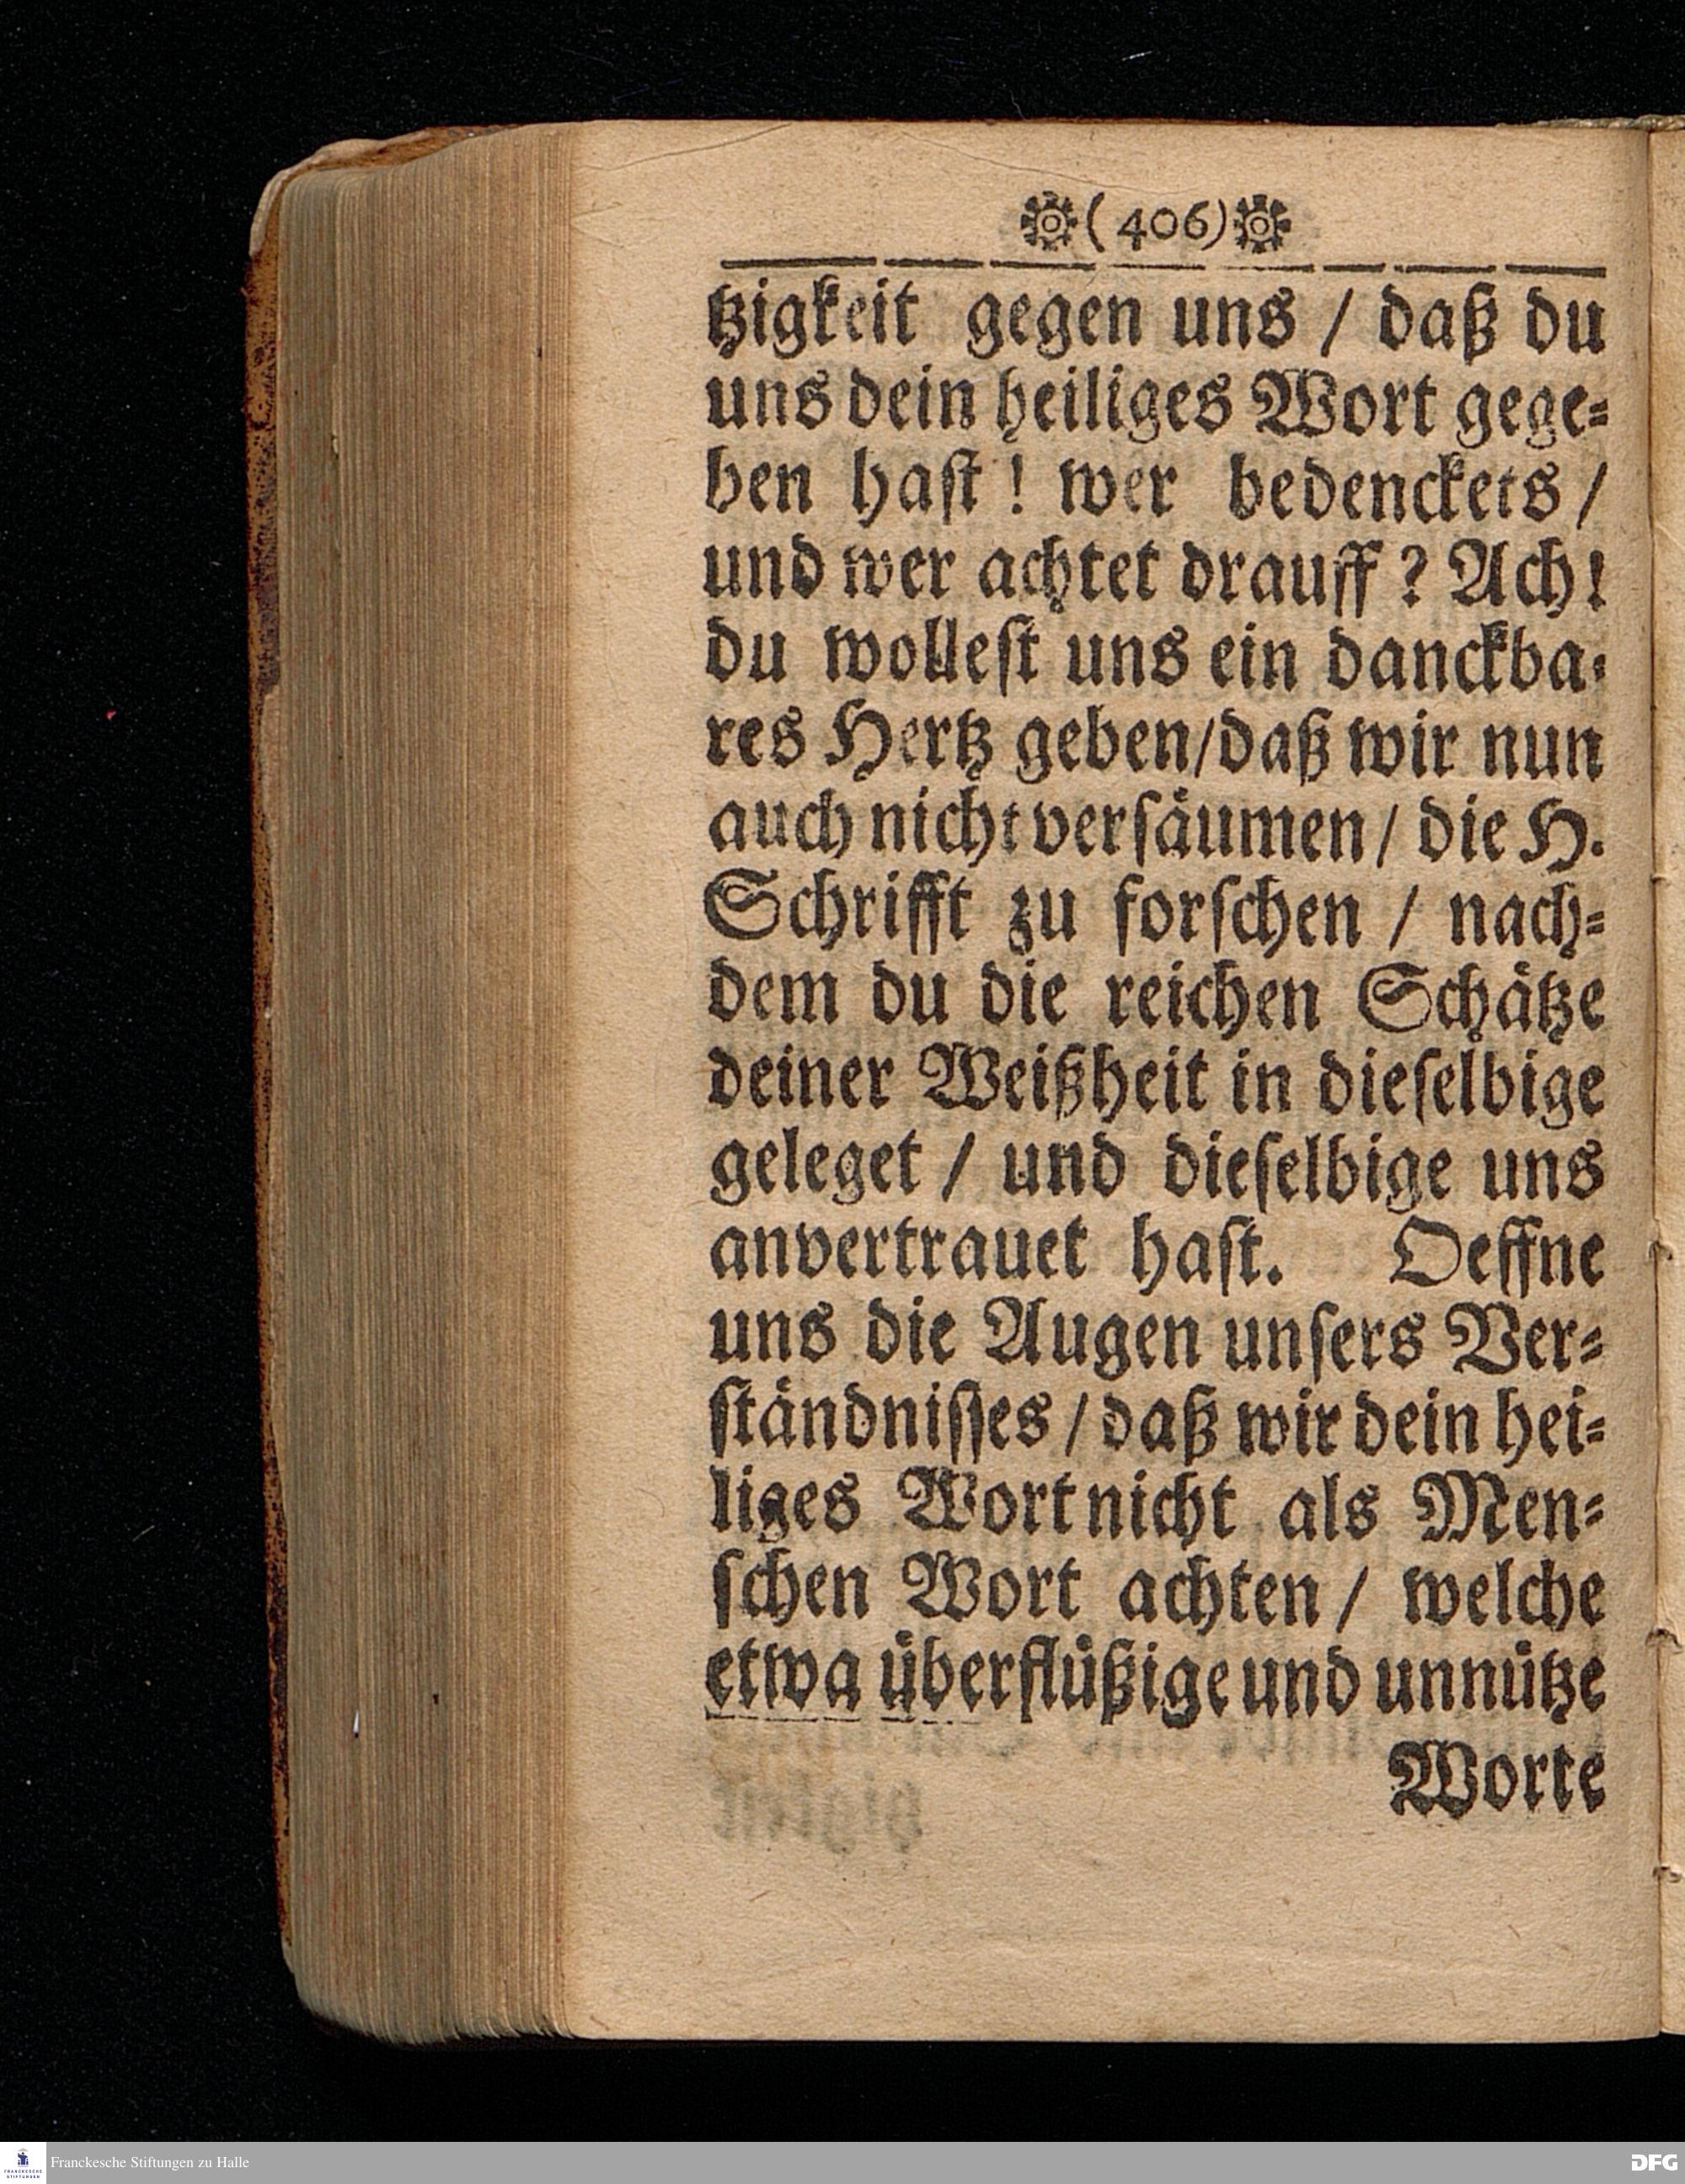 (406)
tzigkeit gegen uns / daß du
uns dein heiliges Wort gege⸗
ben haſt! wer bedenckets /
und wer achtet drauff? Ach!
du wolleſt uns ein danckba⸗
res Hertz geben/daß wir nun
auch nicht verſaͤumen / die H.
Schrifft zu forſchen / nach⸗
dem du die reichen Schaͤtze
deiner Weißheit in dieſelbige
geleget / und dieſelbige uns
anvertrauet haſt. Oeffne
uns die Augen unſers Ver⸗
ſtaͤndniſſes / daß wir dein hei⸗
liges Wort nicht als Men⸗
ſchen Wort achten / welche
etwa uͤberfluͤßige und unnuͤtze
Worte
FRANCKESCHE STIFTUNGEN
Franckesche Stiftungen zu Halle
DFG